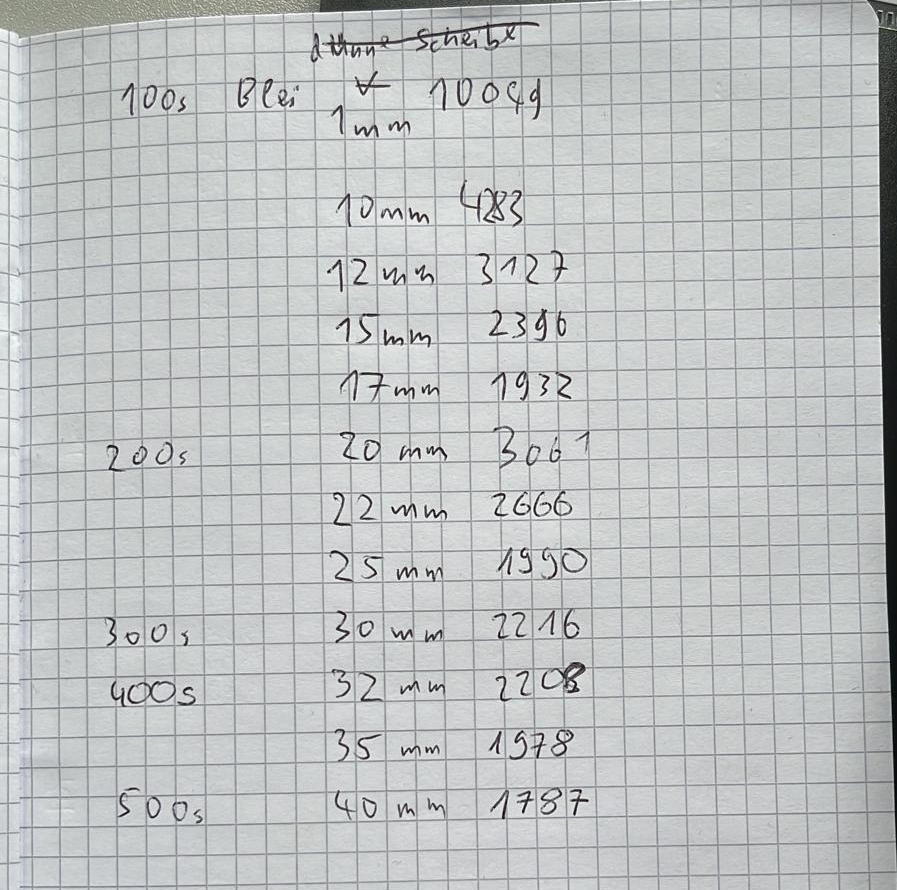 dünne Scheibe
100s Blei 10049
1mm
10mm 4283
12mm 3127
15mm 2396
17mm 1932
200s 20 mm 3061
22 mm 2666
25 mm 1990
300s 30 mm 2216
400s 32 mm 2208
35 mm 1978
500s 40 mm 1787